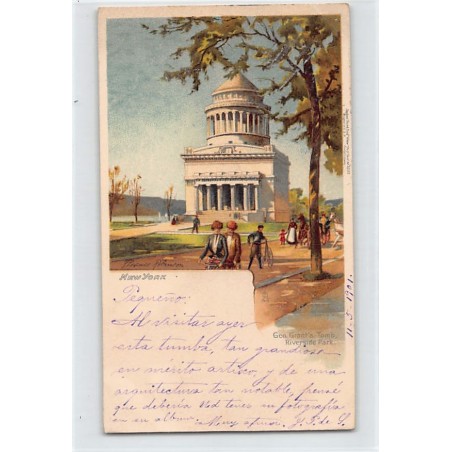 New York
Gen. Grant's Tomb,
Riverside Park.
11-5-1901.
Pequeño:
Al visitar ayer
esta tumba, tan grandiosa
en mérito artístico, y de una
arquitectura tan notable, pensé
que debería Vd tener su fotografía
en su album.
Muy afmo.